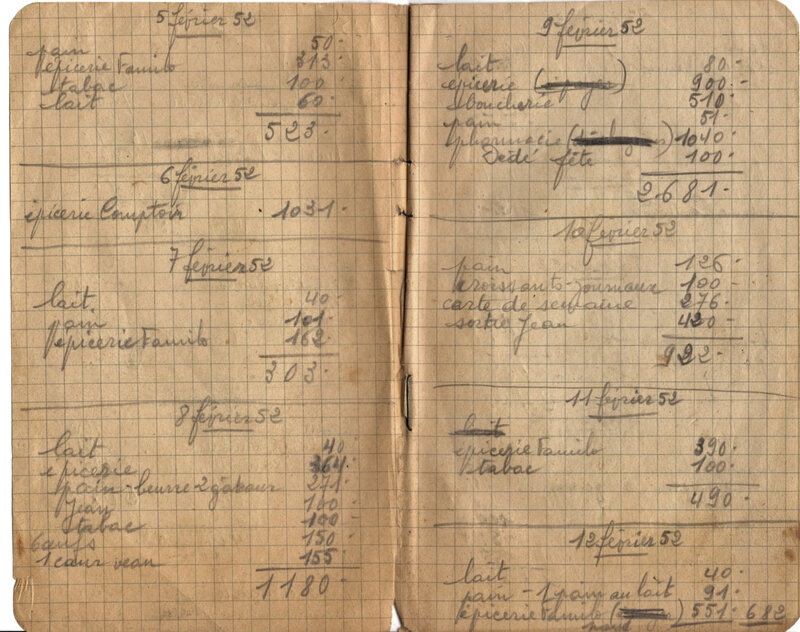 5 février 52
pain 50-
épicerie Familo 313-
tabac 100-
lait 60-
523-
6 février 52
épicerie Comptoir 1031-
7 février 52
lait 40-
pain 101-
épicerie Familo 162
303-
8 février 52
lait 40
épicerie 364-
pain - beurre - 2 gâteaux 271-
Jean 100-
tabac 100-
6 œufs 150
1 cœur veau 155-
1180-
9 février 52
lait 80-
épicerie 900-
boucherie 510-
pain 51-
pharmacie 1040-
Dédé fête 100-
2.681-
10 février 52
pain 126-
croissants - journaux 100-
carte de semaine 276-
sortie Jean 420-
922-
11 février 52
lait
épicerie Familo 390-
tabac 100-
490-
12 février 52
lait 40-
pain - 1 pain au lait 91-
épicerie Familo 551- 682